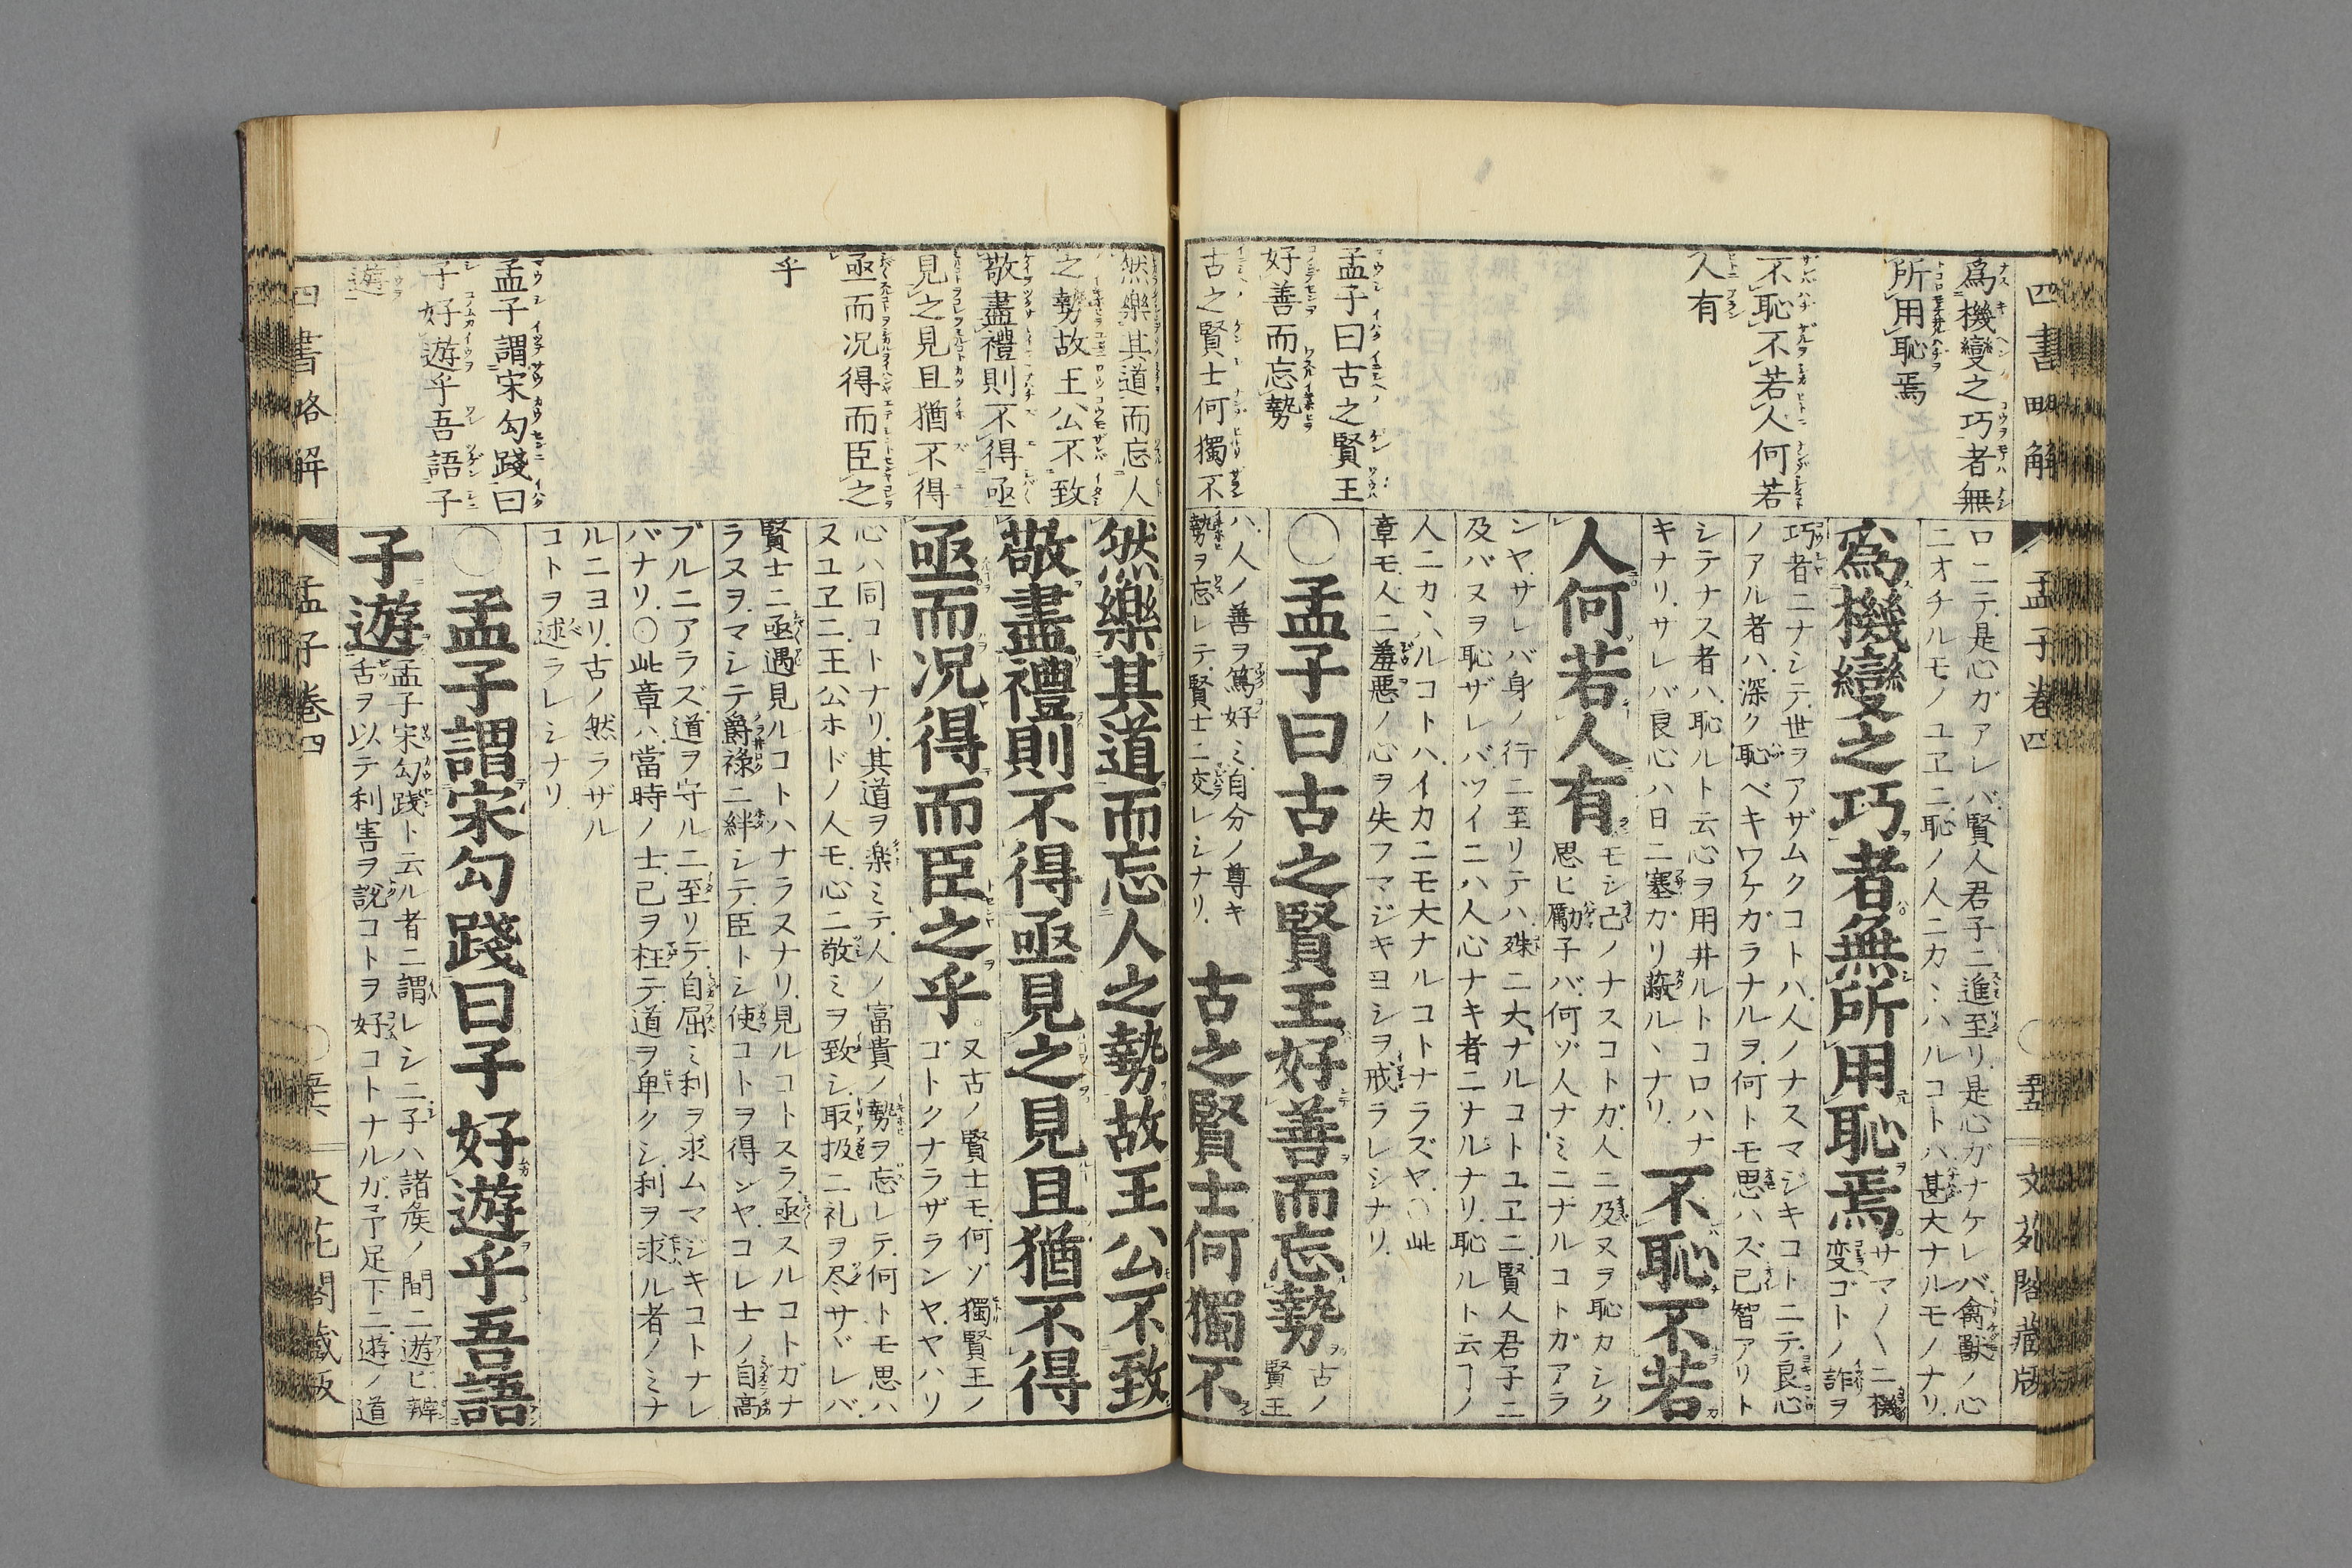 四書略解
孟子卷四
文苑閣藏版
爲機變之巧者無
所用恥焉
不恥不若人何若
人有
孟子曰古之賢王
好善而忘勢
古之賢士何獨不
ロニテ是心ガアレバ賢人君子ニ進至リ是心ガナケレバ禽獸ノ心
ニオチルモノユヱニ恥ノ人ニカヽハルコトハ甚大ナルモノナリ
爲機變之巧者無所用恥焉
サマ〲ニ機
変ゴトノ詐ヲ
巧者ニナシテ世ヲアザムクコトハ人ノナスマジキコトニテ良心
ノアル者ハ深ク恥ベキワケガラナルヲ何トモ思ハズ己智アリト
シテナス者ハ恥ルト云心ヲ用井ルトコロハナ
キナリサレバ良心ハ日ニ塞ガリ蔽ルヽナリ
不恥不若
人何若人有
モシ己ノナスコトガ人ニ及ヌヲ恥カシク
思ヒ勵子バ何ゾ人ナミニナルコトガアラ
ンヤサレバ身ノ行ニ至リテハ殊ニ大ナルコトユヱニ賢人君子ニ
及バヌヲ恥ザレバツイニハ人心ナキ者ニナルナリ恥ルト云ヿノ
人ニカヽハルコトハイカニモ大ナルコトナラズヤ○此
章モ人ニ羞惡ノ心ヲ失フマジキヨシヲ戒ラレシナリ
○孟子曰古之賢王好善而忘勢
古ノ
賢王
ハ人ノ善ヲ篤好ミ自分ノ尊キ
勢ヲ忘レテ賢士ニ交レシナリ
古之賢士何獨不
然樂其道而忘人
之勢故王公不致
敬盡禮則不得亟
見之見且猶不得
亟而况得而臣之
乎
孟子謂宋勾踐曰
子好遊乎吾語子
遊
然樂其道而忘人之勢故王公不致
敬盡禮則不得亟見之見且猶不得
亟而况得而臣之乎
又古ノ賢士モ何ゾ獨賢王ノ
ゴトクナラザランヤヤハリ
心ハ同コトナリ其道ヲ楽ミテ人ノ富貴ノ勢ヲ忘レテ何トモ思ハ
ヌユヱニ王公ホドノ人モ心ニ敬ミヲ致シ取扱ニ礼ヲ尽サヾレバ
賢士ニ亟遇見ルコトハナラヌナリ見ルコトスラ亟スルコトガナ
ラヌヲマシテ爵祿ニ絆シテ臣トシ使コトヲ得ンヤコレ士ノ自高
ブルニアラズ道ヲ守ルニ至リテ自屈ミ利ヲ求ムマジキコトナレ
バナリ○此章ハ當時ノ士己ヲ枉テ道ヲ卑クシ利ヲ求ル者ノミナ
ルニヨリ古ノ然ラザル
コトヲ述ラレシナリ
○孟子謂宋勾踐曰子好遊乎吾語
子遊
孟子宋勾践ト云ル者ニ謂レシニ子ハ諸矦ノ間ニ遊ビ辯
舌ヲ以テ利害ヲ説コトヲ好コトナルガ予足下ニ遊ノ道
四書略解
孟子卷四
文花閣藏版